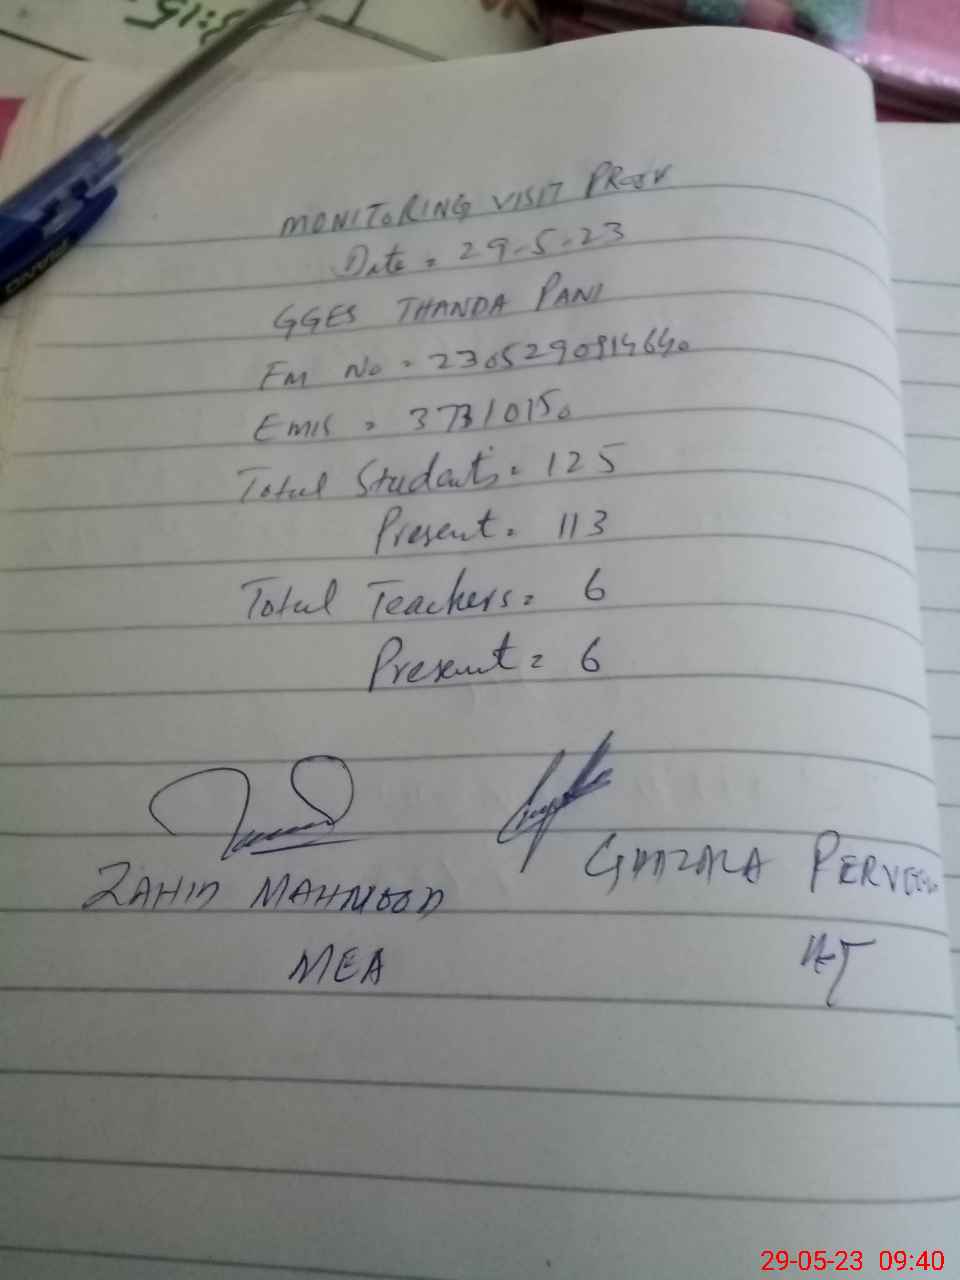 :15
MONITORING VISIT PROOF
Date = 29-5-23
GGES THANDA PANI
FM No = 2305290914640
Emis = 37310150
Total Students = 125
Present = 113
Total Teachers = 6
Present = 6
ZAHID MAHMOOD
GHAZALA PERVEEN
MEA
HT
29-05-23 09:40